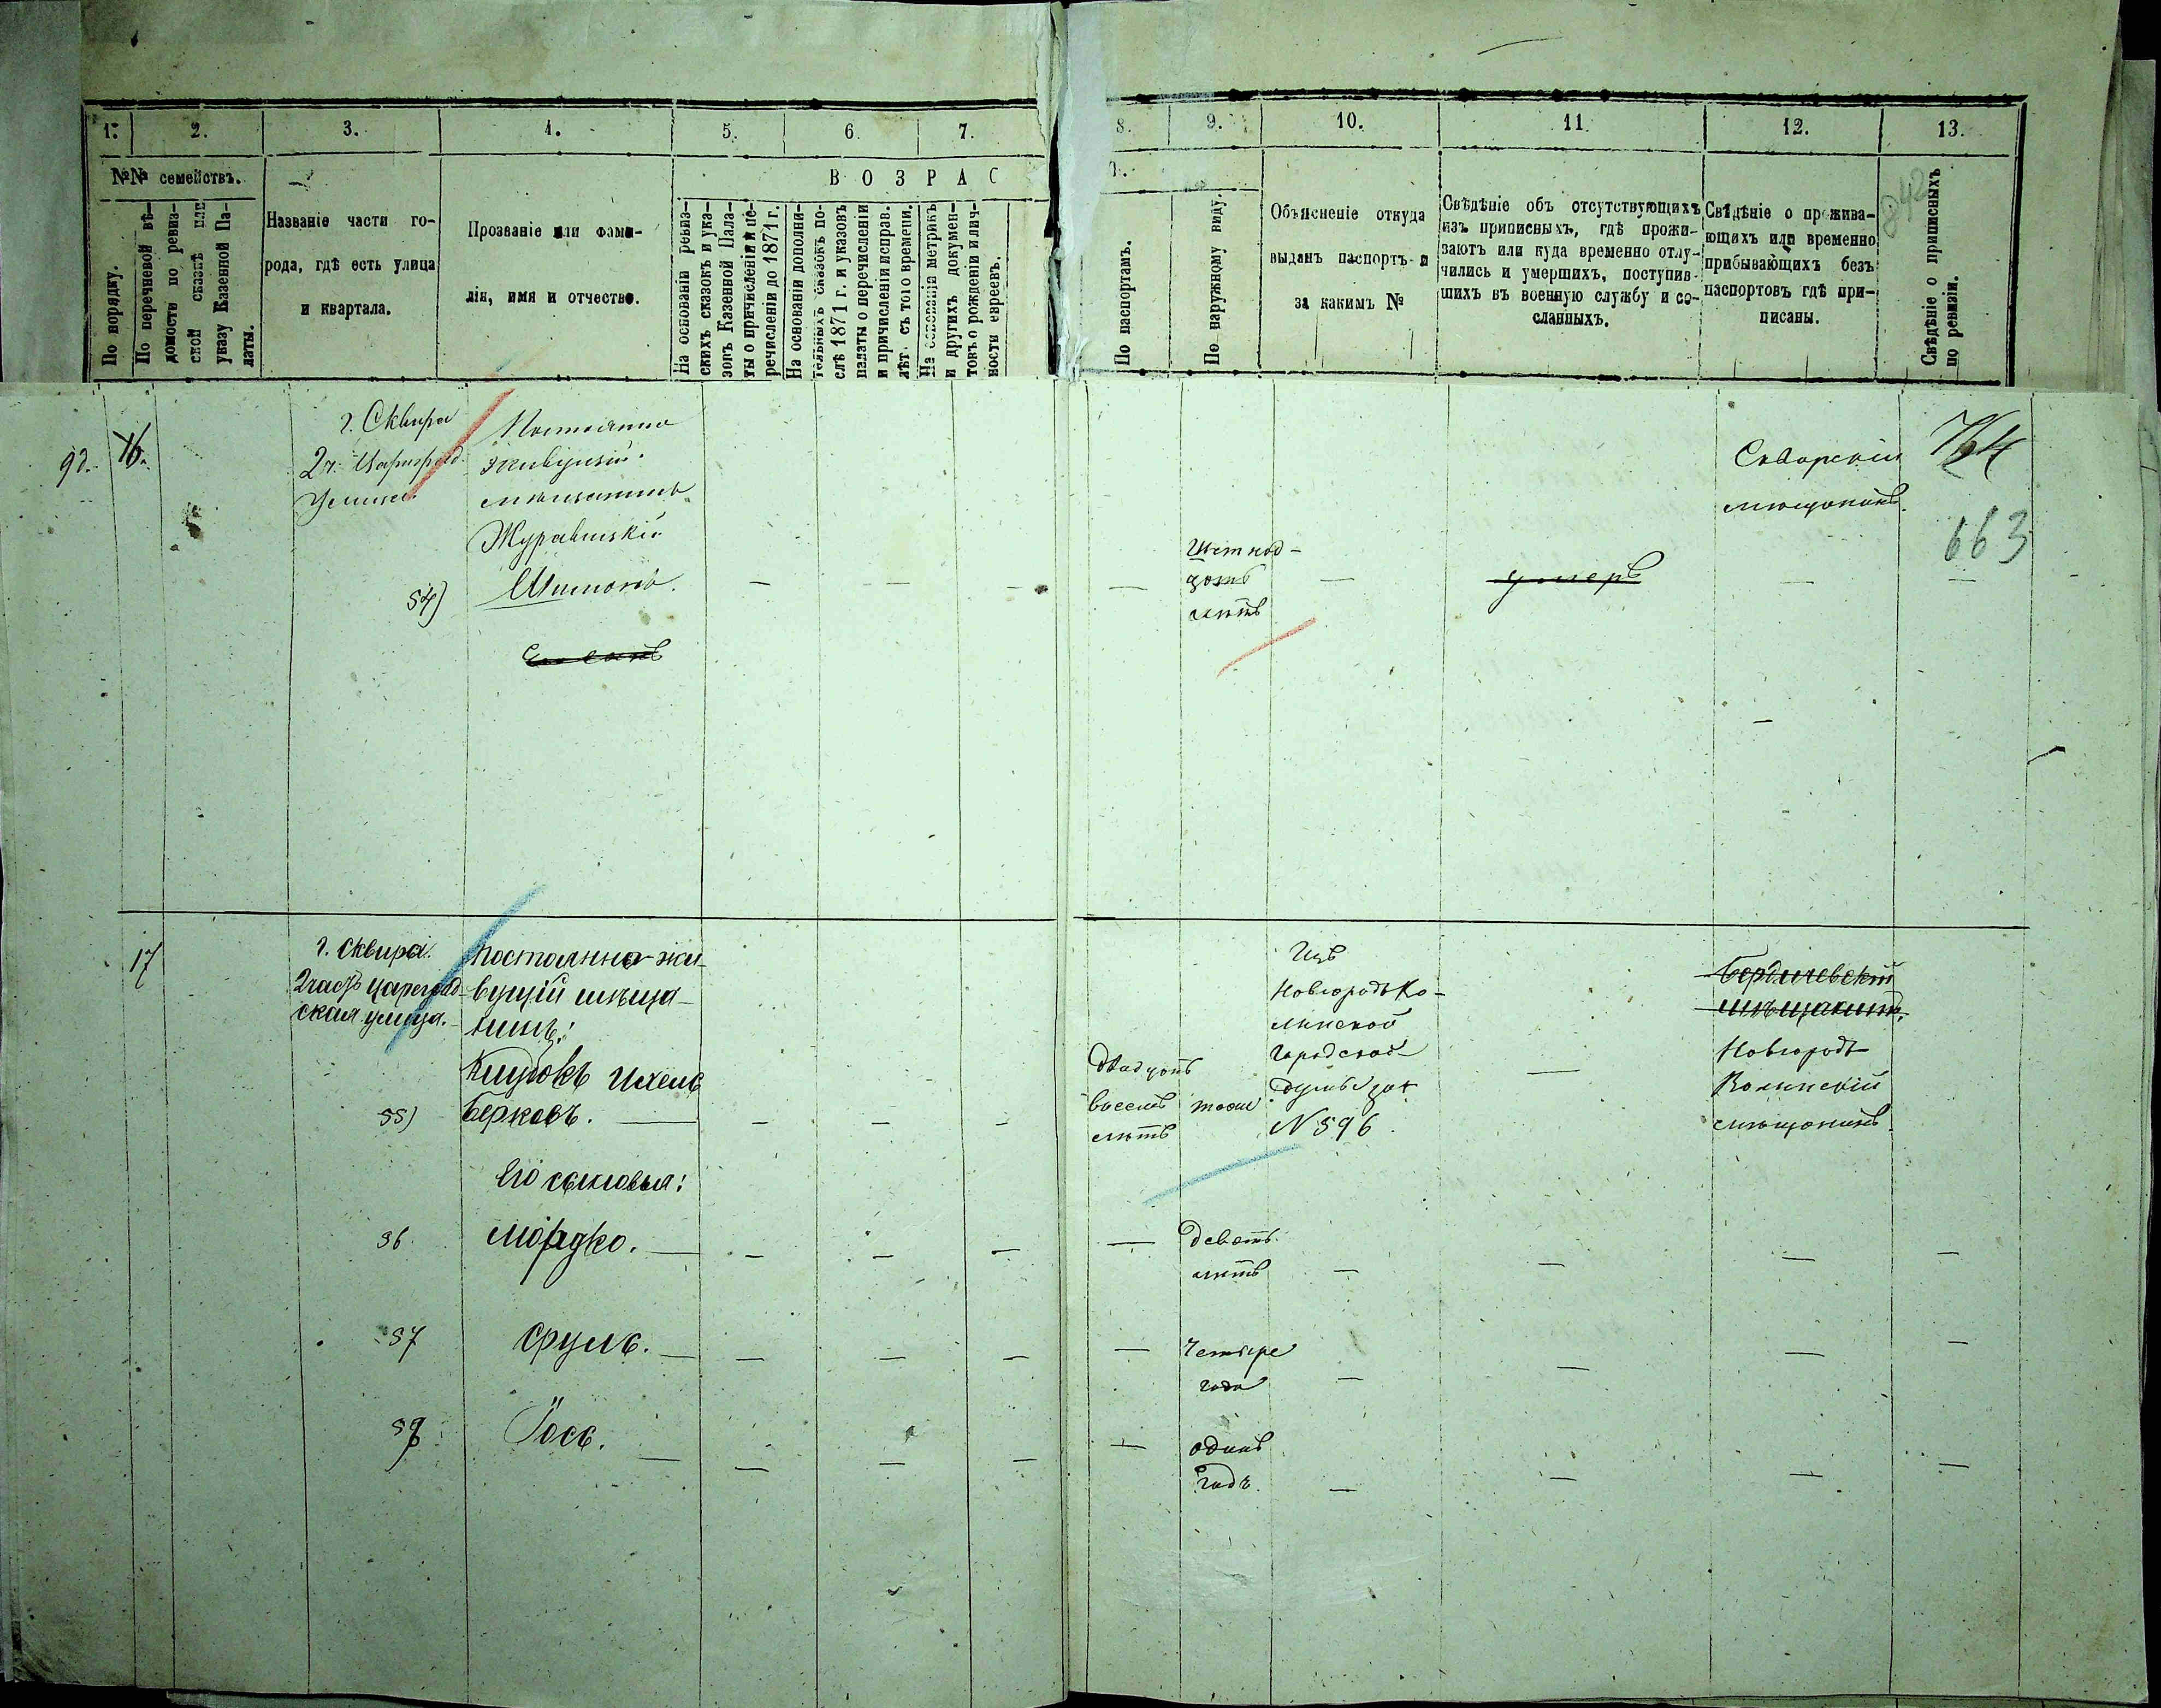 1. 2. 3. 4. 5. 6. 7. 8. 9. 10. 11 12. 13.
№№ семействъ.
По порядку.
По перечневой вѣ-
домости по ревиз-
ской сказкѣ или
указу Казенной Па-
латы.
Названіе части го-
рода, гдѣ есть улица
и квартала.
Прозваніе или фами-
лія, имя и отчество.
ВОЗРАС
На основаніи ревиз-
скихъ сказокъ и ука-
зовъ Казенной Пала-
ты о причисленіи и пе-
речисленіи до 1871 г.
На основаніи дополни-
тельныхъ сказокъ по-
слѣ 1871 г. и указовъ
палаты о перечисленіи
и причисленіи исправ.
лѣт. съ того времени.
На основаніи метрикъ
и другихъ докумен-
товъ о рожденіи и лич-
ности евреевъ.
Т.
По паспортамъ.
По наружному виду.
Объясненіе откуда
выданъ паспортъ и
за какимъ №
Свѣдѣніе объ отсутствующихъ
изъ приписныхъ, гдѣ прожи-
ваютъ или куда временно отлу-
чились и умершихъ, поступив-
шихъ въ военную службу и со-
сланныхъ.
Свѣдѣніе о прожива-
ющихъ или временно
прибывающихъ безъ
паспортовъ гдѣ при-
писаны.
Свѣдѣніе о приписныхъ
по ревизіи.
842
92. 16.
г. Сквира
2 ч. Цариград.
Улица.
Постоянно
живущій
мѣщанинъ
Журавискій
54) Шимонъ.
Его сынъ
Шестнад-
цать
лѣтъ
умеръ
Сквирскій
мѣщанинъ.
764
663
17
г. Сквира.
2 часть Цареград-
ская улица.
Постоянно-жи-
вущій мѣща-
нинъ:
Клубокъ Ихель
55) Берковъ.
Двадцать
восемь
лѣтъ
тоже
Изъ
Новгородъ Во-
лынской
Городской
Думы за
№ 596.
Бердичевскій
мѣщанинъ.
Новгородъ
Волынскій
мѣщанинъ.
Его сыновья:
56. Мордко.
Девять
лѣтъ
57 Сруль.
Четыре
года
58 Іось.
одинъ
годъ.